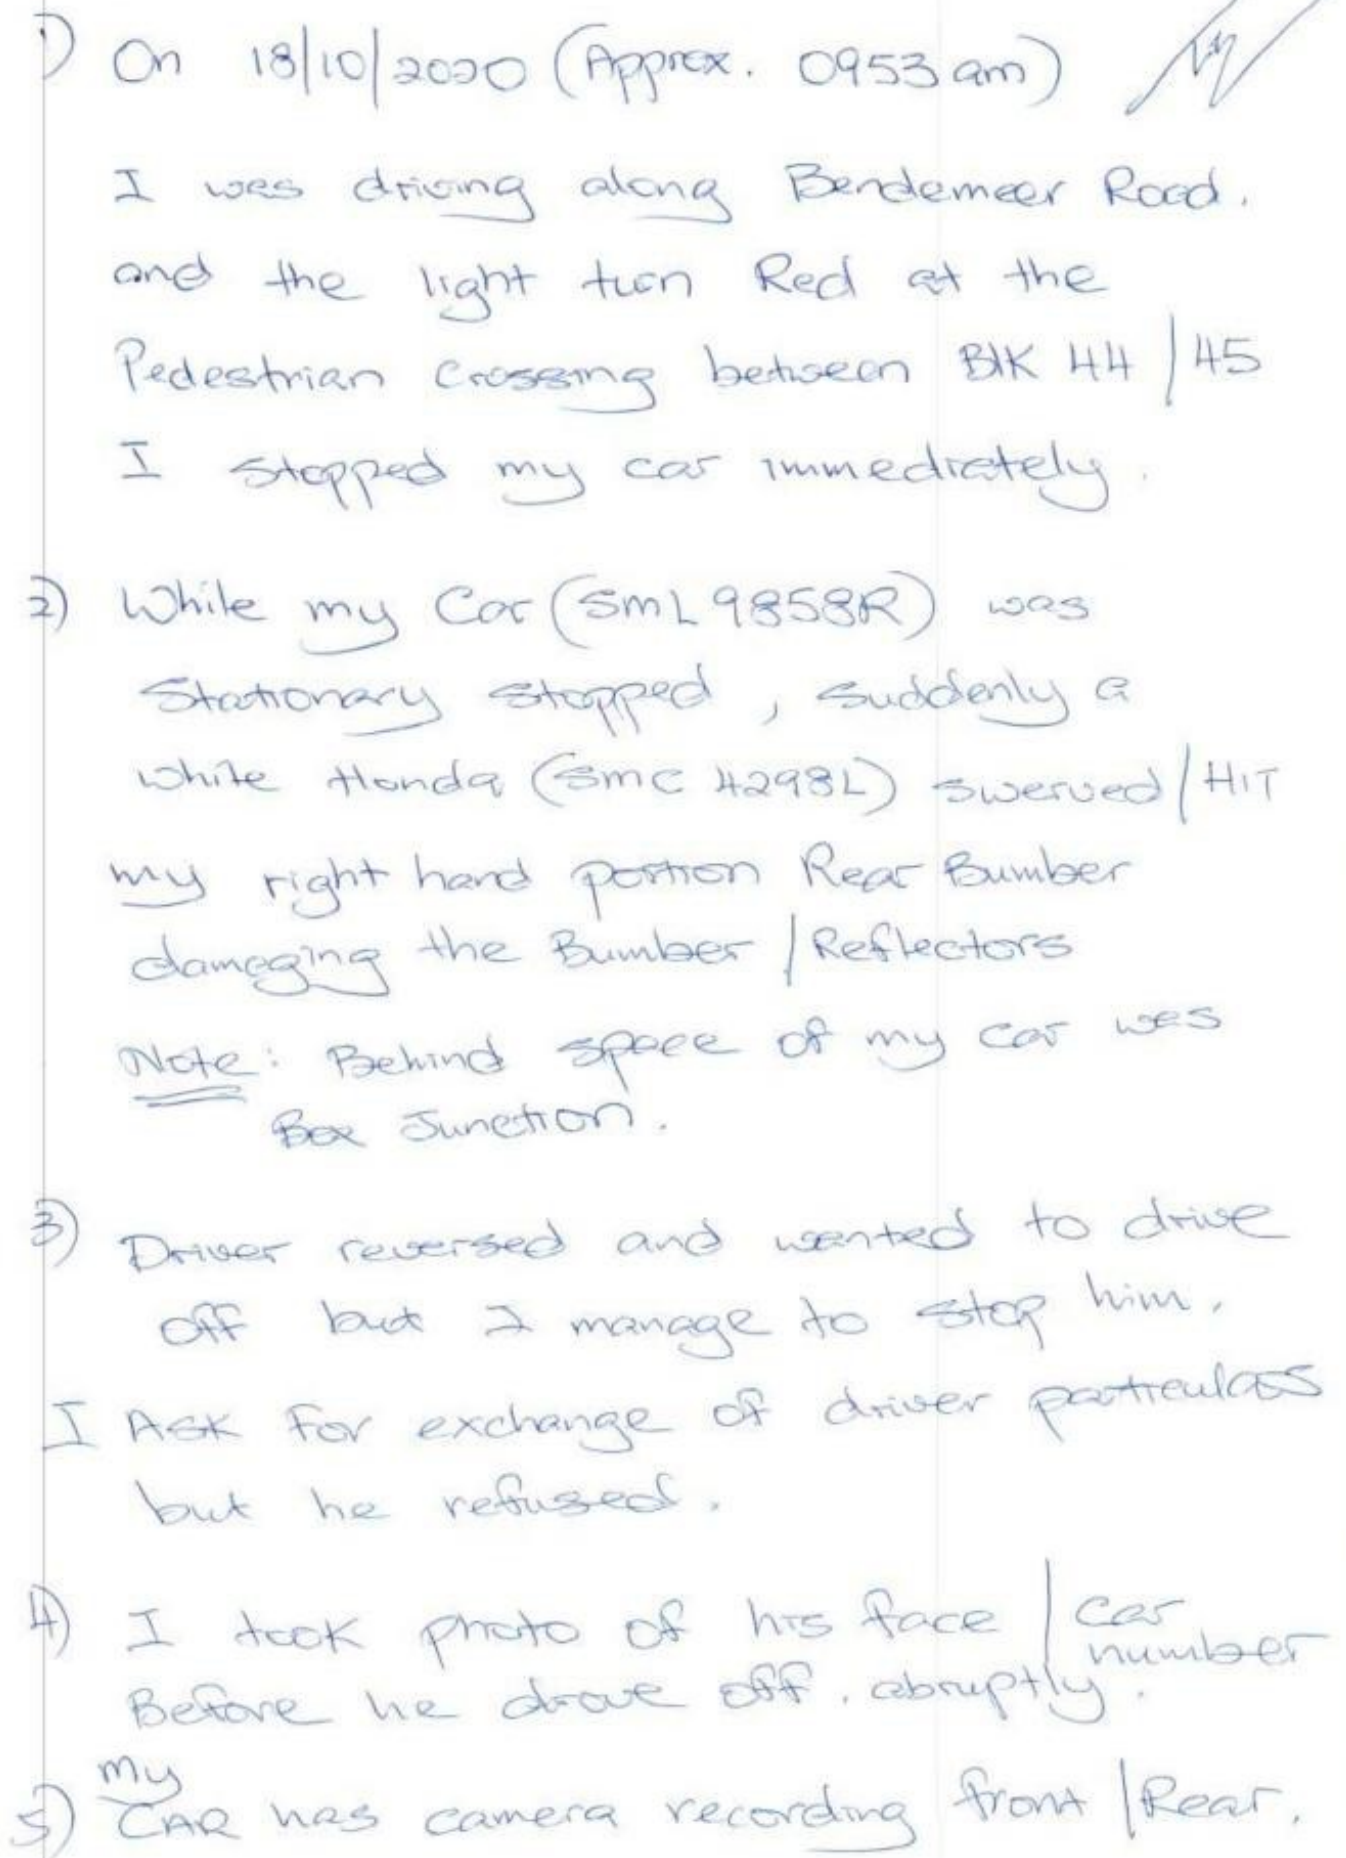 1) On 18/10/2020 (Approx. 0953 am)
I was driving along Bendemeer Road.
and the light turn Red at the
Pedestrian Crossing between Blk 44 / 45
I stopped my car immediately.
2) While my Car (SmL 9858R) was
Stationary stopped, suddenly a
white Honda (SmC 4298L) swerved / HIT
my right hand portion Rear Bumber
damaging the Bumber / Reflectors
Note: Behind space of my car was
Box Junction.
3) Driver reversed and wanted to drive
off but I manage to stop him.
I Ask for exchange of driver particulars
but he refused.
4) I took photo of his face / car number
Before he drove off. abruptly.
5) my CAR has camera recording front / Rear.